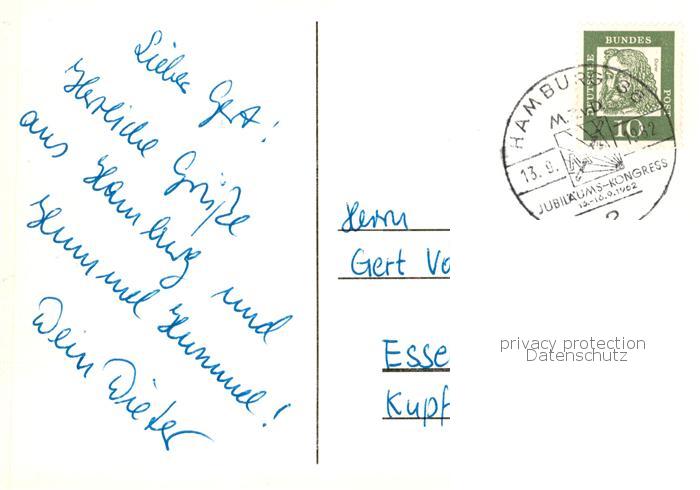 Lieber Gert!
Herzliche Grüße
aus Hamburg und
Hummel Hummel!
Dein Dieter
Herrn
Gert Vo
Esse
Kupf
BUNDES
POST
DEUTSCHE
Dürer
10
HAMBURG 36
13.9.
JUBILÄUMS-KONGRESS
13.-16.9.1962
privacy protection
Datenschutz